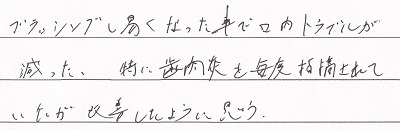 ブラッシングし易くなった事で口内トラブルが
減った、特に歯肉炎を毎度指摘されて
いたが改善したように思う.